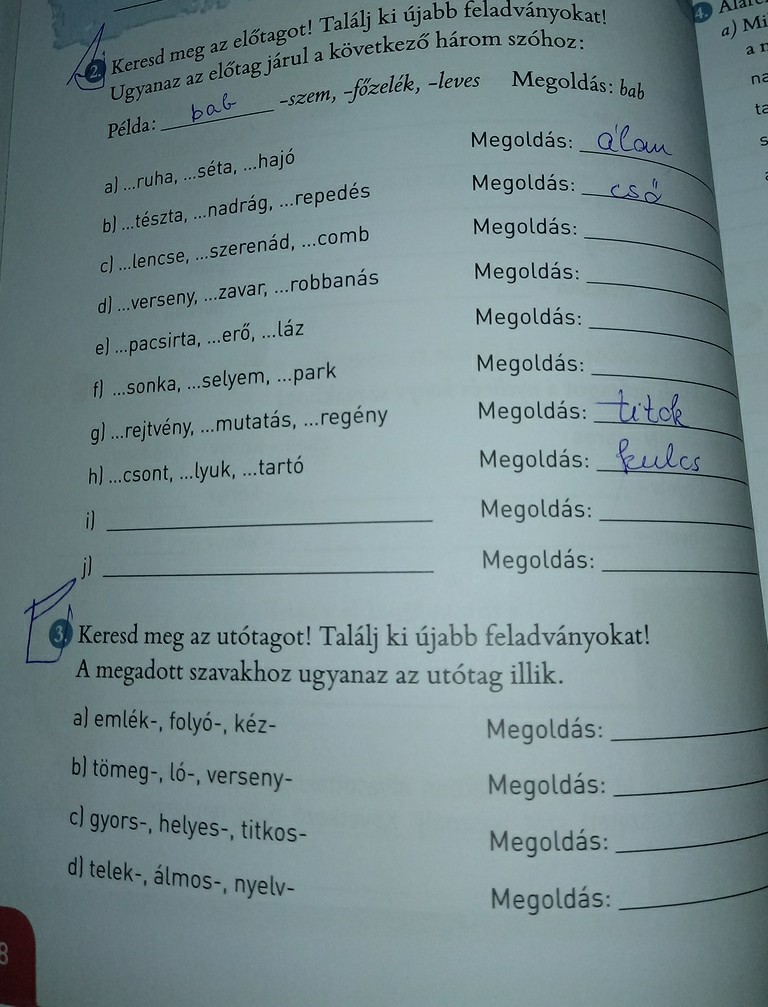 2. Keresd meg az előtagot! Találj ki újabb feladványokat!
Ugyanaz az előtag járul a következő három szóhoz:
Példa: bab -szem, -főzelék, -leves Megoldás: bab
a) ...ruha, ...séta, ...hajó Megoldás: álom
b) ...tészta, ...nadrág, ...repedés Megoldás: cső
c) ...lencse, ...szerenád, ...comb Megoldás:
d) ...verseny, ...zavar, ...robbanás Megoldás:
e) ...pacsirta, ...erő, ...láz Megoldás:
f) ...sonka, ...selyem, ...park Megoldás:
g) ...rejtvény, ...mutatás, ...regény Megoldás: titok
h) ...csont, ...lyuk, ...tartó Megoldás: kulcs
i) Megoldás:
j) Megoldás:
3. Keresd meg az utótagot! Találj ki újabb feladványokat!
A megadott szavakhoz ugyanaz az utótag illik.
a) emlék-, folyó-, kéz- Megoldás:
b) tömeg-, ló-, verseny- Megoldás:
c) gyors-, helyes-, titkos- Megoldás:
d) telek-, álmos-, nyelv- Megoldás:
8
4.
a) Mi